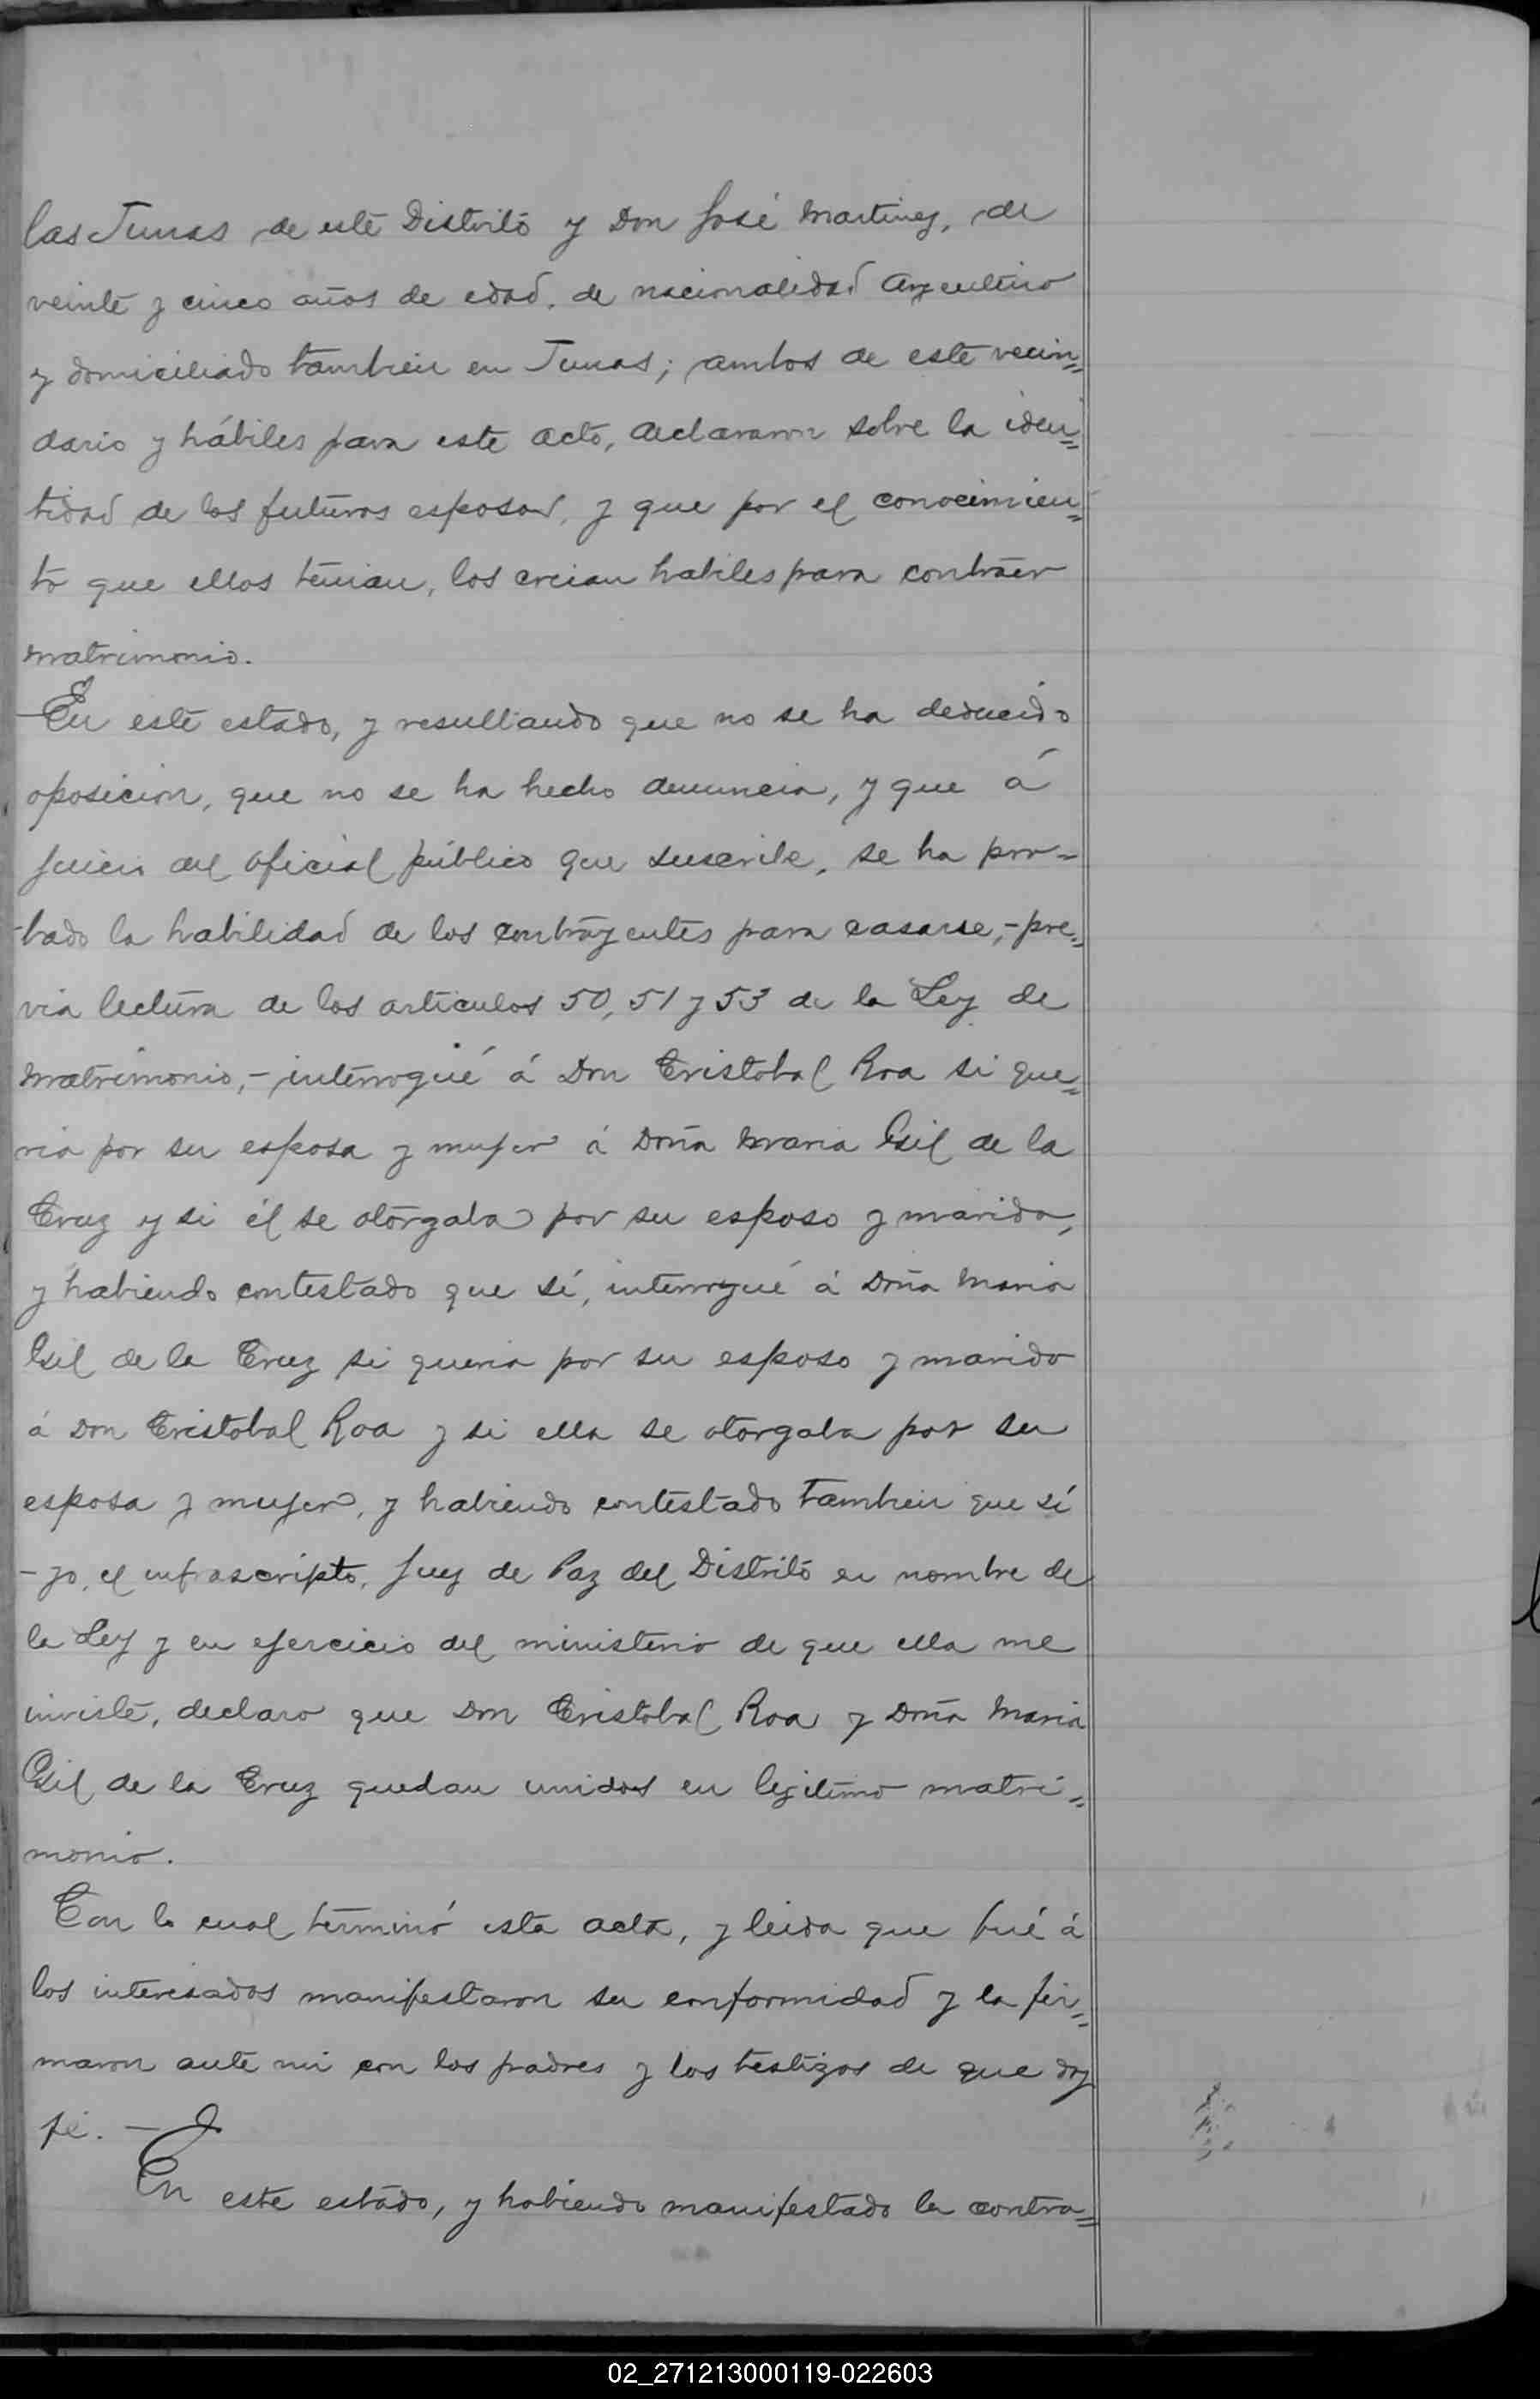 las Tunas de este Distrito y Don José Martinez, de
veinte y cinco años de edad, de nacionalidad Argentino
y domiciliado tambien en Tunas; ambos de este vecin=
dario y hábiles para este acto, declararon sobre la iden=
tidad de los futuros esposos, y que por el conocimien=
to que ellos tenian, los creian habiles para contraer
matrimonio.
En este estado, y resultando que no se ha deducido
oposicion, que no se ha hecho denuncia, y que á
juicio del oficial público que suscribe, se ha pro=
bado la habilidad de los contrayentes para casarse,- pre=
via lectura de los articulos 50, 51 y 53 de la Ley de
matrimonio,- interrogué á Don Cristobal Roa si que=
ria por su esposa y mujer á Doña Maria Gil de la
Cruz y si él se otorgaba por su esposo y marido,
y habiendo contestado que sí, interrogué á Doña Maria
Gil de la Cruz si queria por su esposo y marido
á Don Cristobal Roa y si ella se otorgaba por su
esposa y mujer, y habiendo contestado tambien que sí
- yo, el infrascripto, Juez de Paz del Distrito en nombre de
la Ley y en ejercicio del ministerio de que ella me
inviste, declaro que Don Cristobal Roa y Doña Maria
Gil de la Cruz quedan unidos en lejitimo matri=
monio.
Con lo cual terminó esta acta, y leida que fué á
los interesados manifestaron su conformidad y la fir=
maron ante mi con los padres y los testigos de que doy
fé. —
En este estado, y habiendo manifestado la contra=
02_271213000119-022603